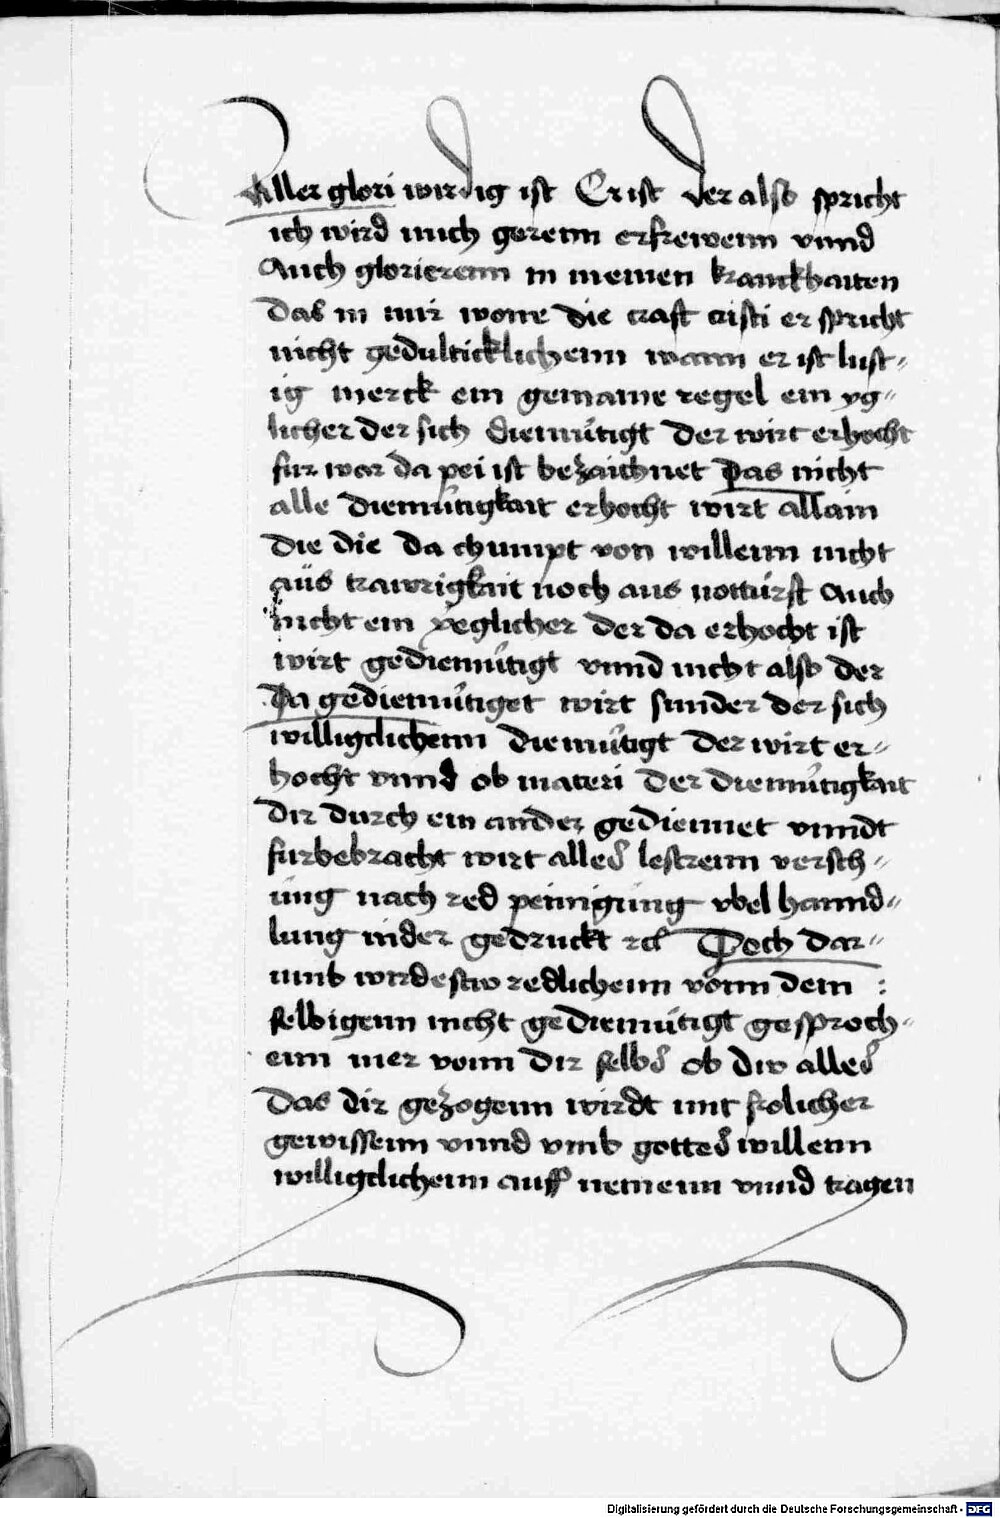 Aller glori wirdig ist Er ist der also spricht
ich wird mich gerenn erfrewenn vnnd
Auch glorierenn in meinen kranckhaiten
Das in mir wone die craft cristi er spricht
nicht gedulticklichenn wann er ist lust-
ig merck ein gemaine regel ein yg-
licher der sich diemütigt der wirt erhocht
fur war da pei ist bezaichnet Das nicht
alle diemütigkait erhocht wirt allain
die die da chumpt von willenn nicht
aüs trawrigkait noch aus notturft Auch
nicht ein yeglicher der da erhocht ist
wirt gediemütigt vnnd nicht also der
Da gediemütiget wirt sunder der sich
willigclichenn diemütigt der wirt er-
hocht vnnd ob materi der diemütigkait
dir durch ein ander gediennet vnndt
furbebracht wirt alles lestrenn versch-
üng nach red peinigüng vbel hannd-
lung nider gedruckt rcl Doch dar-
umb wirdestw redlichenn vonn dem
selbigenn nicht gediemütigt gesproch-
enn mer vonn dir selbs ob dw alles
Das dir gezogenn wirdt mit frolicher
gewissenn vnnd vmb gottes willenn
willigclichenn auff nemenn vnnd tragen
Digitalisierung gefördert durch die Deutsche Forschungsgemeinschaft - DFG